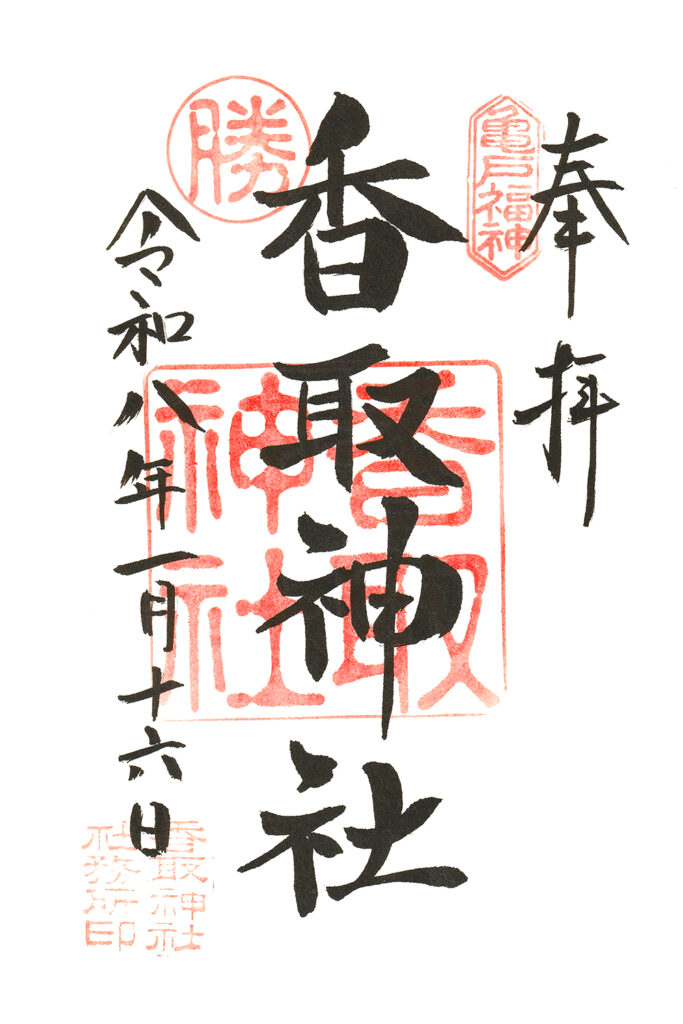 奉拝
亀戸福神
香取神社
勝
香取神社
令和八年一月十六日
香取神社
社務所印